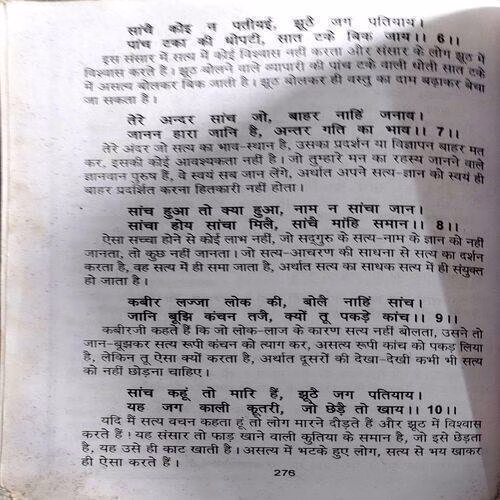 सांचै कोइ न पतीयई, झूठै जग पतियाय।
पांच टका की धोपटी, सात टके बिक जाय।। 6।।
इस संसार में सत्य में कोई विश्वास नहीं करता और संसार के लोग झूठ में
विश्वास करते हैं। झूठ बोलने वाले व्यापारी की पांच टके वाली धोती सात टके
में असत्य बोलकर बिक जाती है। झूठ बोलकर ही वस्तु का दाम बढ़ाकर बेचा
जा सकता है।
तेरे अन्दर सांच जो, बाहर नाहिं जनाव।
जानन हारा जानि है, अन्तर गति का भाव।। 7।।
तेरे अंदर जो सत्य का भाव-स्थान है, उसका प्रदर्शन या विज्ञापन बाहर मत
कर, इसकी कोई आवश्यकता नहीं है। जो तुम्हारे मन का रहस्य जानने वाले
ज्ञानवान पुरुष हैं, वे स्वयं सब जान लेंगे, अर्थात अपने सत्य-ज्ञान को स्वयं ही
बाहर प्रदर्शित करना हितकारी नहीं होता।
सांच हुआ तो क्या हुआ, नाम न सांचा जान।
सांचा होय सांचा मिलै, सांचै मांहि समान।। 8।।
ऐसा सच्चा होने से कोई लाभ नहीं, जो सद्गुरु के सत्य-नाम के ज्ञान को नहीं
जानता, तो कुछ नहीं जानता। जो सत्य-आचरण की साधना से सत्य का दर्शन
करता है, वह सत्य में ही समा जाता है, अर्थात सत्य का साधक सत्य में ही संयुक्त
हो जाता है।
कबीर लज्जा लोक की, बोलै नाहिं सांच।
जानि बूझि कंचन तजै, क्यों तू पकड़े कांच।। 9।।
कबीरजी कहते हैं कि जो लोक-लाज के कारण सत्य नहीं बोलता, उसने तो
जान-बूझकर सत्य रूपी कंचन को त्याग कर, असत्य रूपी कांच को पकड़ लिया
है, लेकिन तू ऐसा क्यों करता है, अर्थात दूसरों की देखा-देखी कभी भी सत्य
को नहीं छोड़ना चाहिए।
सांच कहूं तो मारि हैं, झूठै जग पतियाय।
यह जग काली कूतरी, जो छेड़ै तो खाय।। 10।।
यदि मैं सत्य वचन कहता हूं तो लोग मारने दौड़ते हैं और झूठ में विश्वास
करते हैं! यह संसार तो फाड़ खाने वाली कुतिया के समान है, जो इसे छेड़ता
है, यह उसे ही काट खाती है। असत्य में भटके हुए लोग, सत्य से भय खाकर
ही ऐसा करते हैं।
276